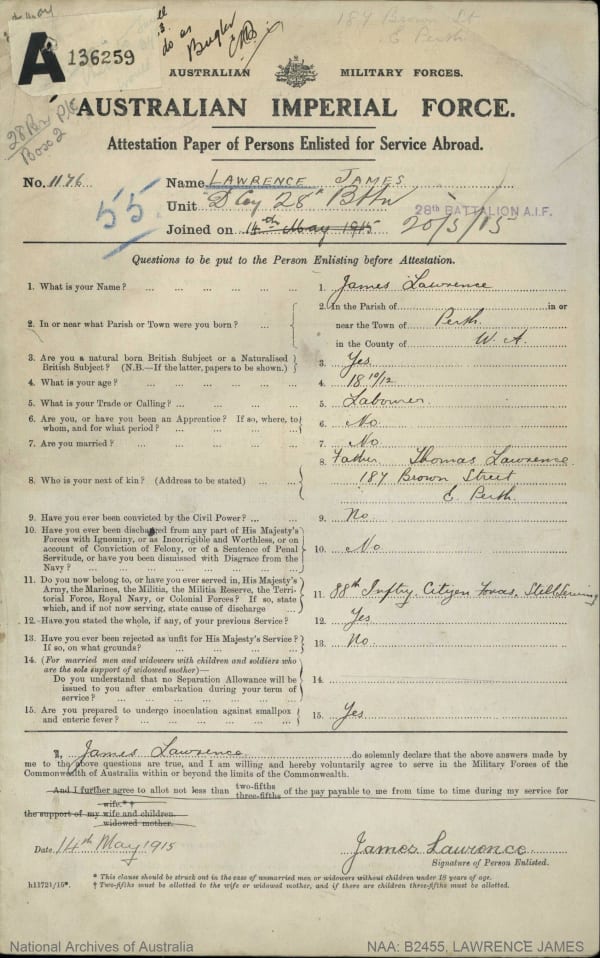 do as
Bugler
187 Brown St
E Perth
A 136259
AUSTRALIAN MILITARY FORCES.
AUSTRALIAN IMPERIAL FORCE.
28 Bn
Box 2
Attestation Paper of Persons Enlisted for Service Abroad.
No. 1176 Name LAWRENCE JAMES
55
Unit "D Coy 28th Bttn 28th BATTALION A.I.F.
Joined on 14th May 1915 20/5/15
Questions to be put to the Person Enlisting before Attestation.
1. What is your Name? ... 1. James Lawrence
2. In or near what Parish or Town were you born? ... 2. In the Parish of ... in or
near the Town of Perth
in the County of W. A.
3. Are you a natural born British Subject or a Naturalised
British Subject? (N.B.—If the latter, papers to be shown.) 3. Yes
4. What is your age? ... 4. 18 10/12
5. What is your Trade or Calling? ... 5. Labourer
6. Are you, or have you been an Apprentice? If so, where, to
whom, and for what period? ... 6. No
7. Are you married? ... 7. No
8. Who is your next of kin? (Address to be stated) ... 8. Father Thomas Lawrence
187 Brown Street
E Perth
9. Have you ever been convicted by the Civil Power? ... 9. No
10. Have you ever been discharged from any part of His Majesty's
Forces with Ignominy, or as Incorrigible and Worthless, or on
account of Conviction of Felony, or of a Sentence of Penal
Servitude, or have you been dismissed with Disgrace from the
Navy? ... 10. No
11. Do you now belong to, or have you ever served in, His Majesty's
Army, the Marines, the Militia, the Militia Reserve, the Terri-
torial Force, Royal Navy, or Colonial Forces? If so, state
which, and if not now serving, state cause of discharge ... 11. 88th Inftry. Citizen Forces. Still Serving
12. Have you stated the whole, if any, of your previous Service? 12. Yes
13. Have you ever been rejected as unfit for His Majesty's Service?
If so, on what grounds? ... 13. No
14. (For married men and widowers with children and soldiers who
are the sole support of widowed mother)—
Do you understand that no Separation Allowance will be
issued to you after embarkation during your term of
service? ... 14.
15. Are you prepared to undergo inoculation against smallpox
and enteric fever? ... 15. Yes
I, James Lawrence do solemnly declare that the above answers made by
me to the above questions are true, and I am willing and hereby voluntarily agree to serve in the Military Forces of the
Commonwealth of Australia within or beyond the limits of the Commonwealth.
And I further agree to allot not less than two-fifths three-fifths of the pay payable to me from time to time during my service for
wife.*†
the support of my wife and children.
widowed mother.
Date 14th May 1915 James Lawrence
Signature of Person Enlisted.
* This clause should be struck out in the case of unmarried men or widowers without children under 18 years of age.
h11721/15*. † Two-fifths must be allotted to the wife or widowed mother, and if there are children three-fifths must be allotted.
National Archives of Australia NAA: B2455, LAWRENCE JAMES